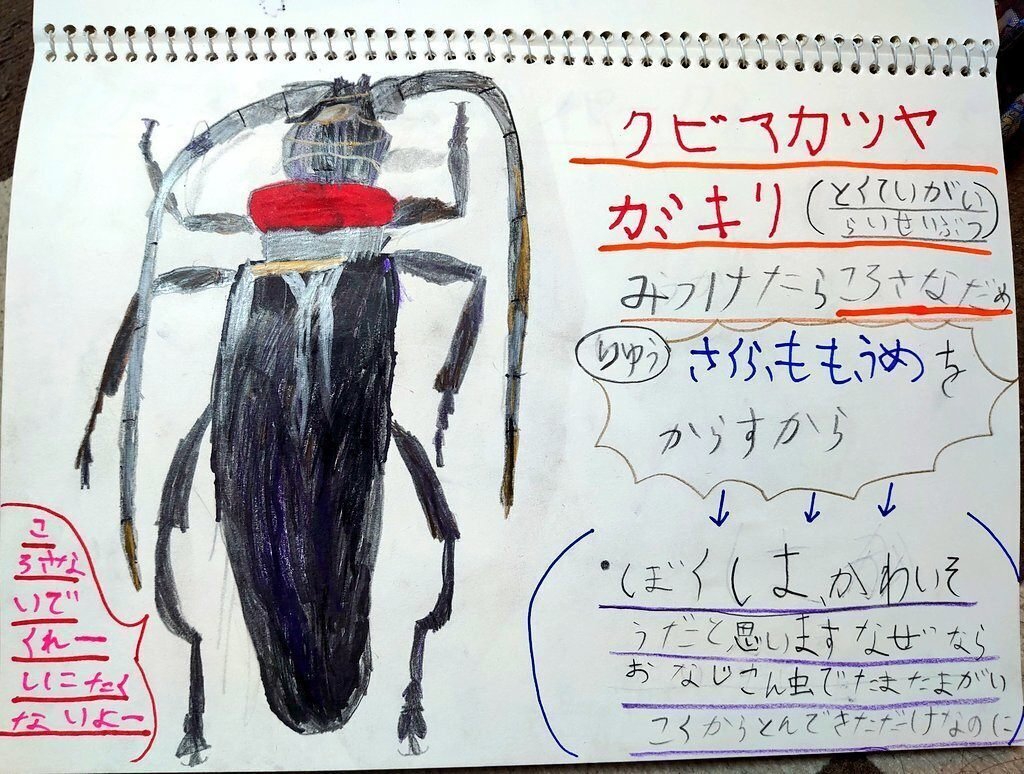 クビアカツヤ
カミキリ(とくていがい
らいせいぶつ)
みつけたらころさなだめ
りゆう さくら、もも、うめを
からすから
・ぼくしは、かわいそ
うだと思いますなぜなら
おなじこん虫でたまたまがい
こくからとんできただけなのに
こ
ろさな
いで
くれー
しにたく
ないよー